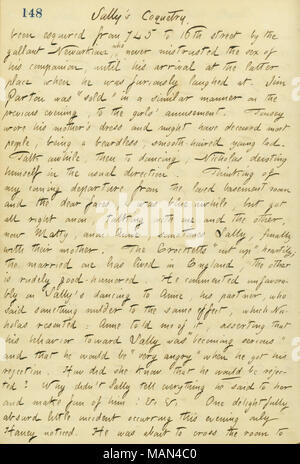 148
Sally's Coquetry.
been esquired from 745 to 16th street by the
gallant Newarkina, who never mistrusted the sex of
his companion, until his arrival at the latter
place when he was furiously laughed at. Jim
Parton was "sold" in a similar manner on the
previous evening, to the girls' amusement.
wore his mother's dress and might have deceived most
people, being a beardless, smooth-haired young lad.
Talk awhile, then to dancing, Nicholas devoting
himself in the usual direction. Thinking of
my coming departure from the loved basement room
and the dear faces I was blue awhile, but got
all right anon talking with one and the other,
now Matty, anon Anne, sometimes Sally, finally
with their mother. The "cut up" heartily;
the married one has lived in England, the other
is rudely good-humored. He commented unfavora-
bly on Sally's dancing to Anne his partner, who
said something milder to the same effect, which Ni-
cholas resented. Anne told me of it, asserting that
his behavior toward Sally was "becoming serious"
and that he would be "very angry" when he got his
rejection. How did she know that he would be rejec-
ted? Why didn't Sally tell everything he said to her
and make fun of him? &c &c. One delightfully
absurd little incident occurring this evening only
Haney noticed. He was about to cross the room to
alamy
Image ID: MAN4C0
www.alamy.com